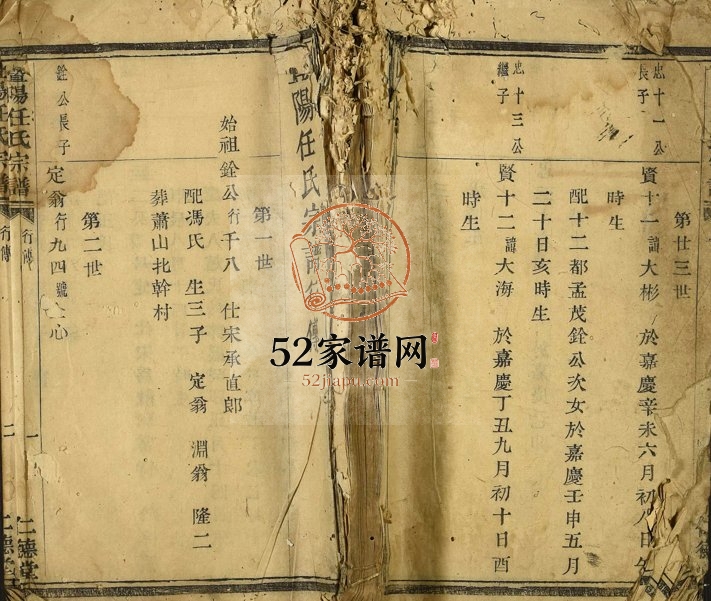 第廿三世
忠十一公長子
賢十一諱大彬 於嘉慶辛未六月初八日
時生
配十二都孟茂銓公次女於嘉慶壬申五月
二十日亥時生
忠十三公繼子
賢十二諱大海 於嘉慶丁丑九月初十日酉
時生
陽任氏宗譜
第一世
始祖銓公行千八 仕宋承直郎
配馮氏 生三子 定翁 淵翁 隆二
葬蕭山北幹村
第二世
銓公長子
定翁行九四號 心
陽任氏宗譜
行傳
一
仁德堂
行傳
二
仁德堂
52家谱网
52jiapu.com